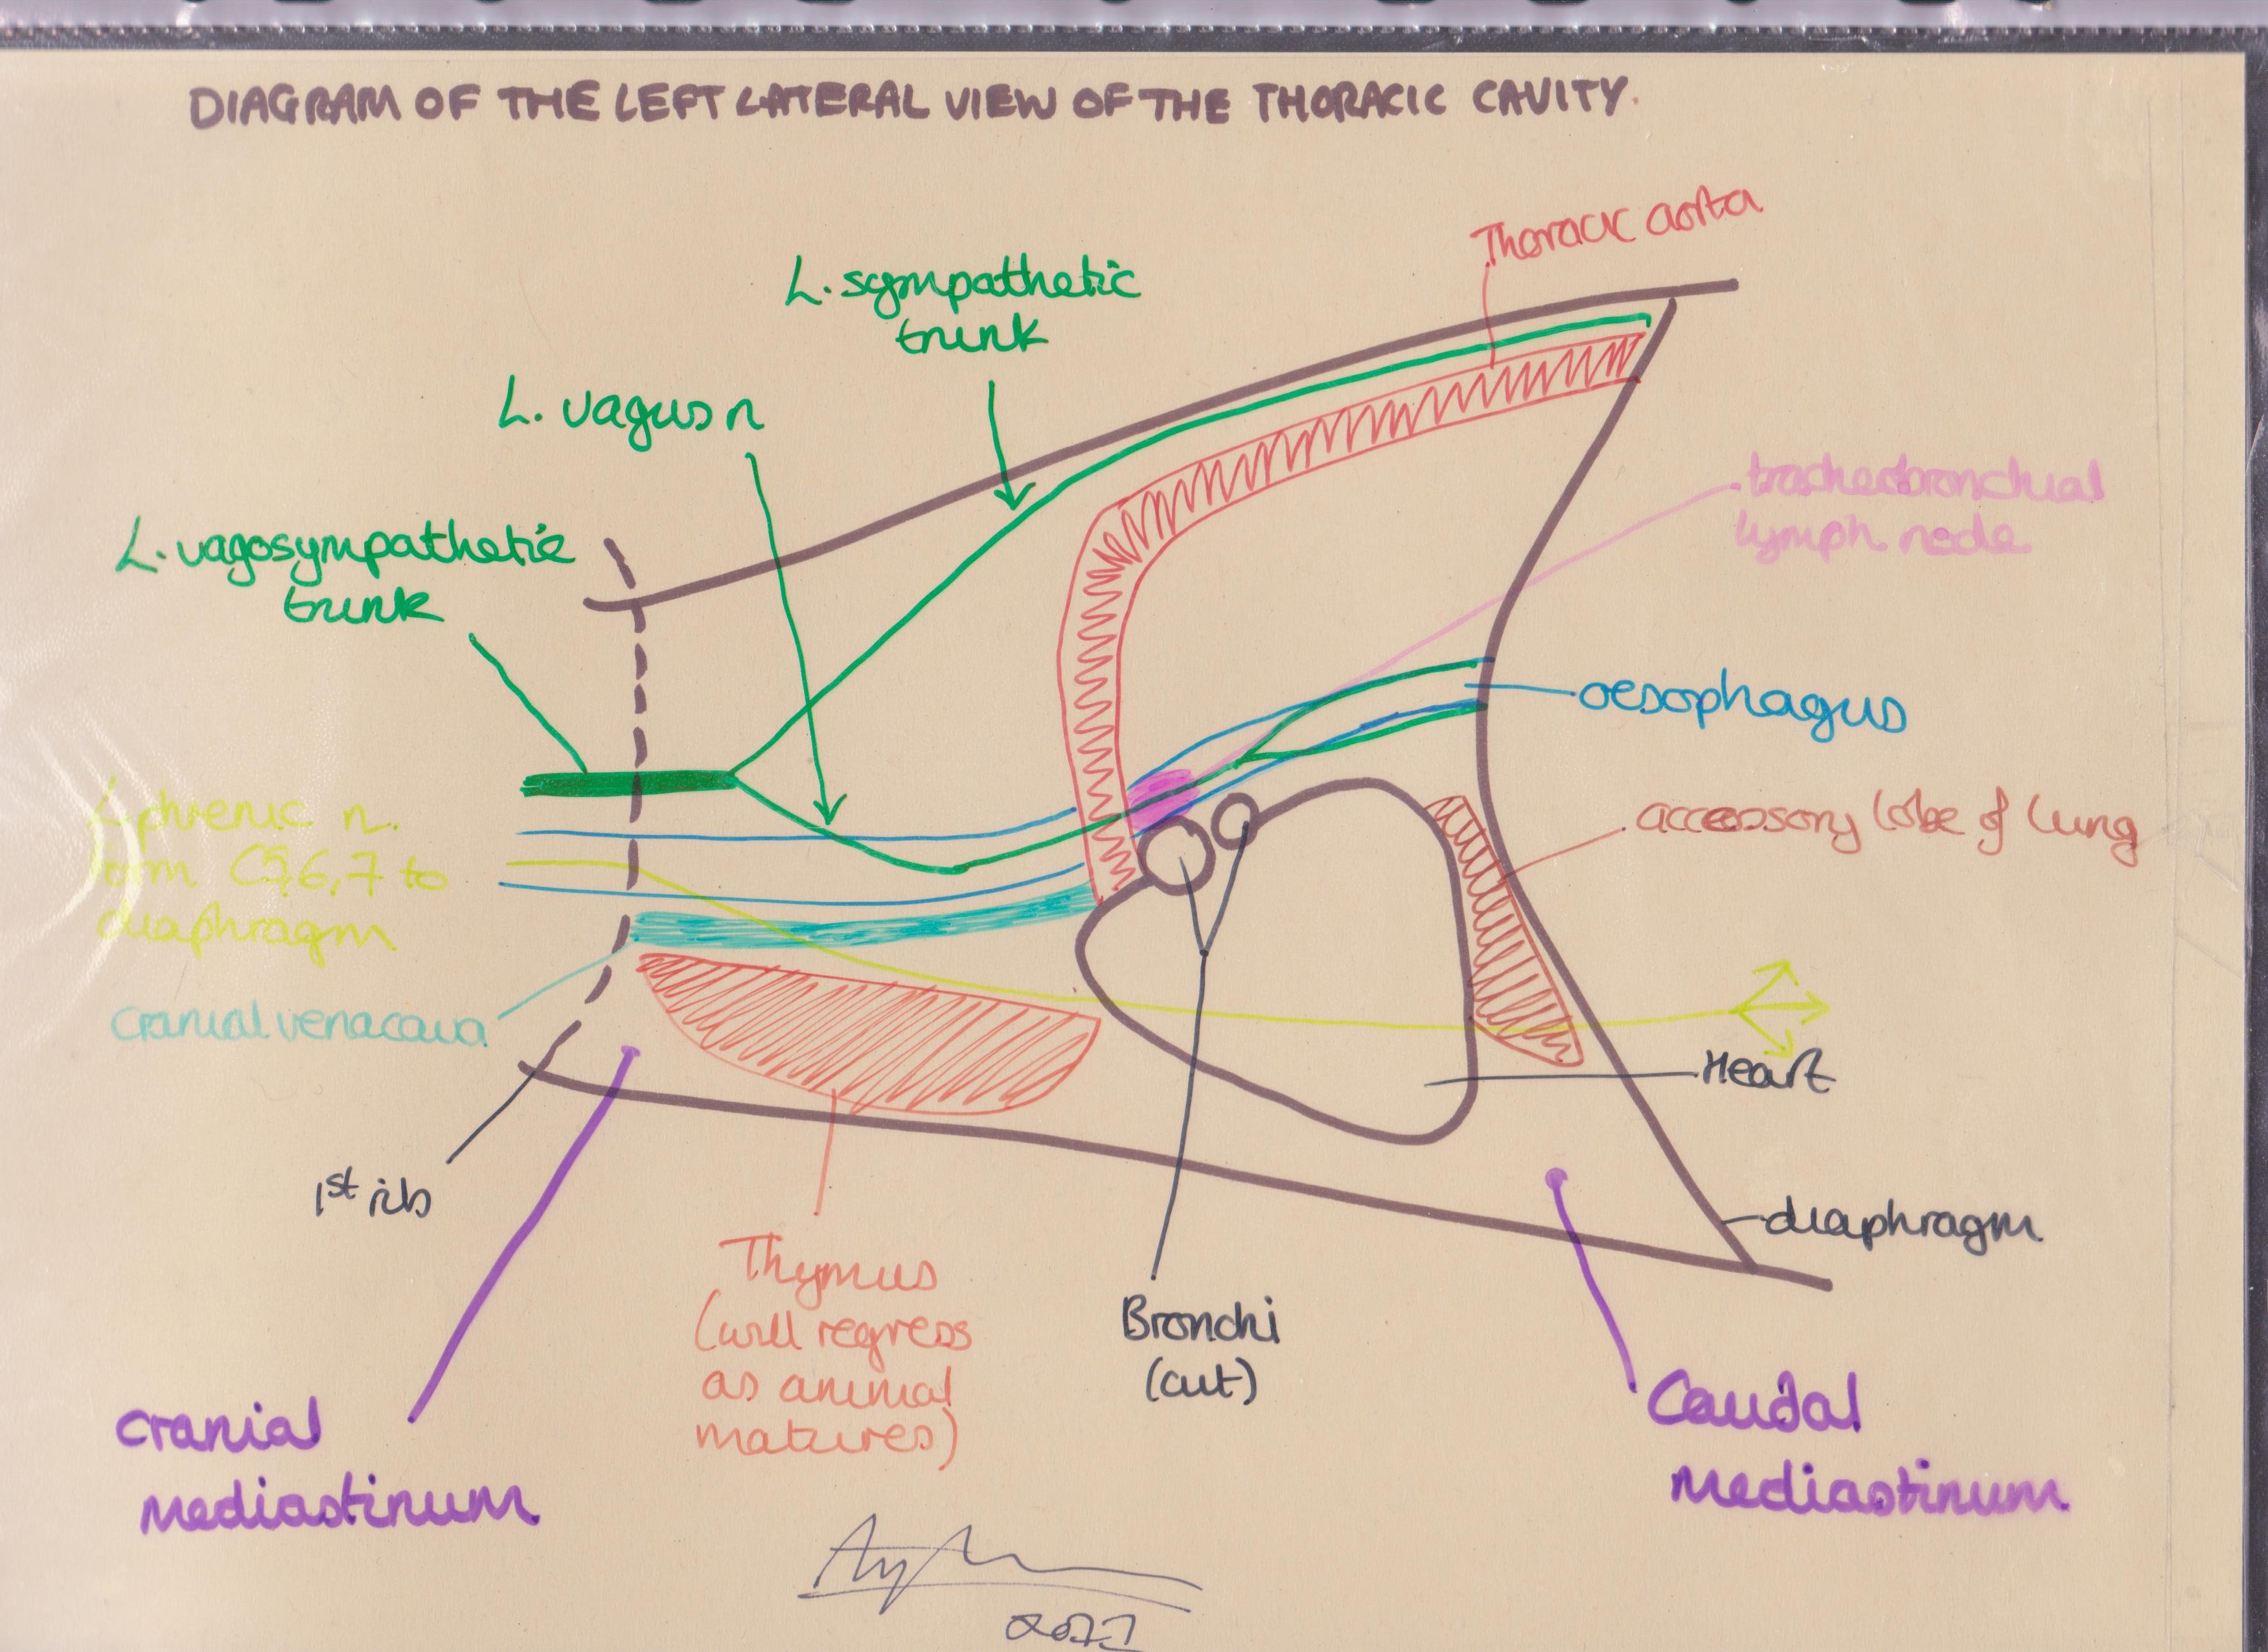 DIAGRAM OF THE LEFT LATERAL VIEW OF THE THORACIC CAVITY.
Thoracic aorta
L. sympathetic
trunk
L. vagus n
L. vagosympathetic
trunk
tracheobronchial
lymph node
oesophagus
L phrenic n.
from C5,6,7 to
diaphragm
accessory lobe of lung
cranial venacava
Heart
1st rib
diaphragm
Thymus
(will regress
as animal
matures)
Bronchi
(cut)
cranial
mediastinum
Caudal
mediastinum